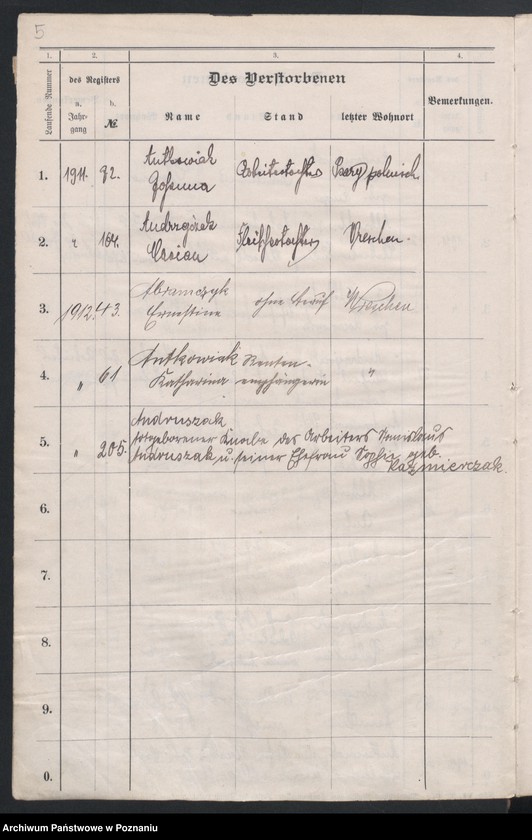 5
1. 2. 3. 4.
Laufende Nummer
des Registers
Des Verstorbenen
Bemerkungen.
a. Jahrgang
b. №
Name Stand letzter Wohnort
1. 1911. 72. Antkowiak Johanna Arbeiterstochter polnisch
2. " 164. Andrzejczak Fleischertochter Wreschen.
3. 1912. 43. Abramczyk Ernestine ohne Beruf Wreschen
4. " 61 Antkowiak Katharina Rentenempfängerin "
5. " 205. Andruszak
totgeborener Knabe des Arbeiters Stanislaus
Andruszak u. seiner Ehefrau Sophie geb.
Kazmierczak.
6.
7.
8.
9.
0.
Archiwum Państwowe w Poznaniu